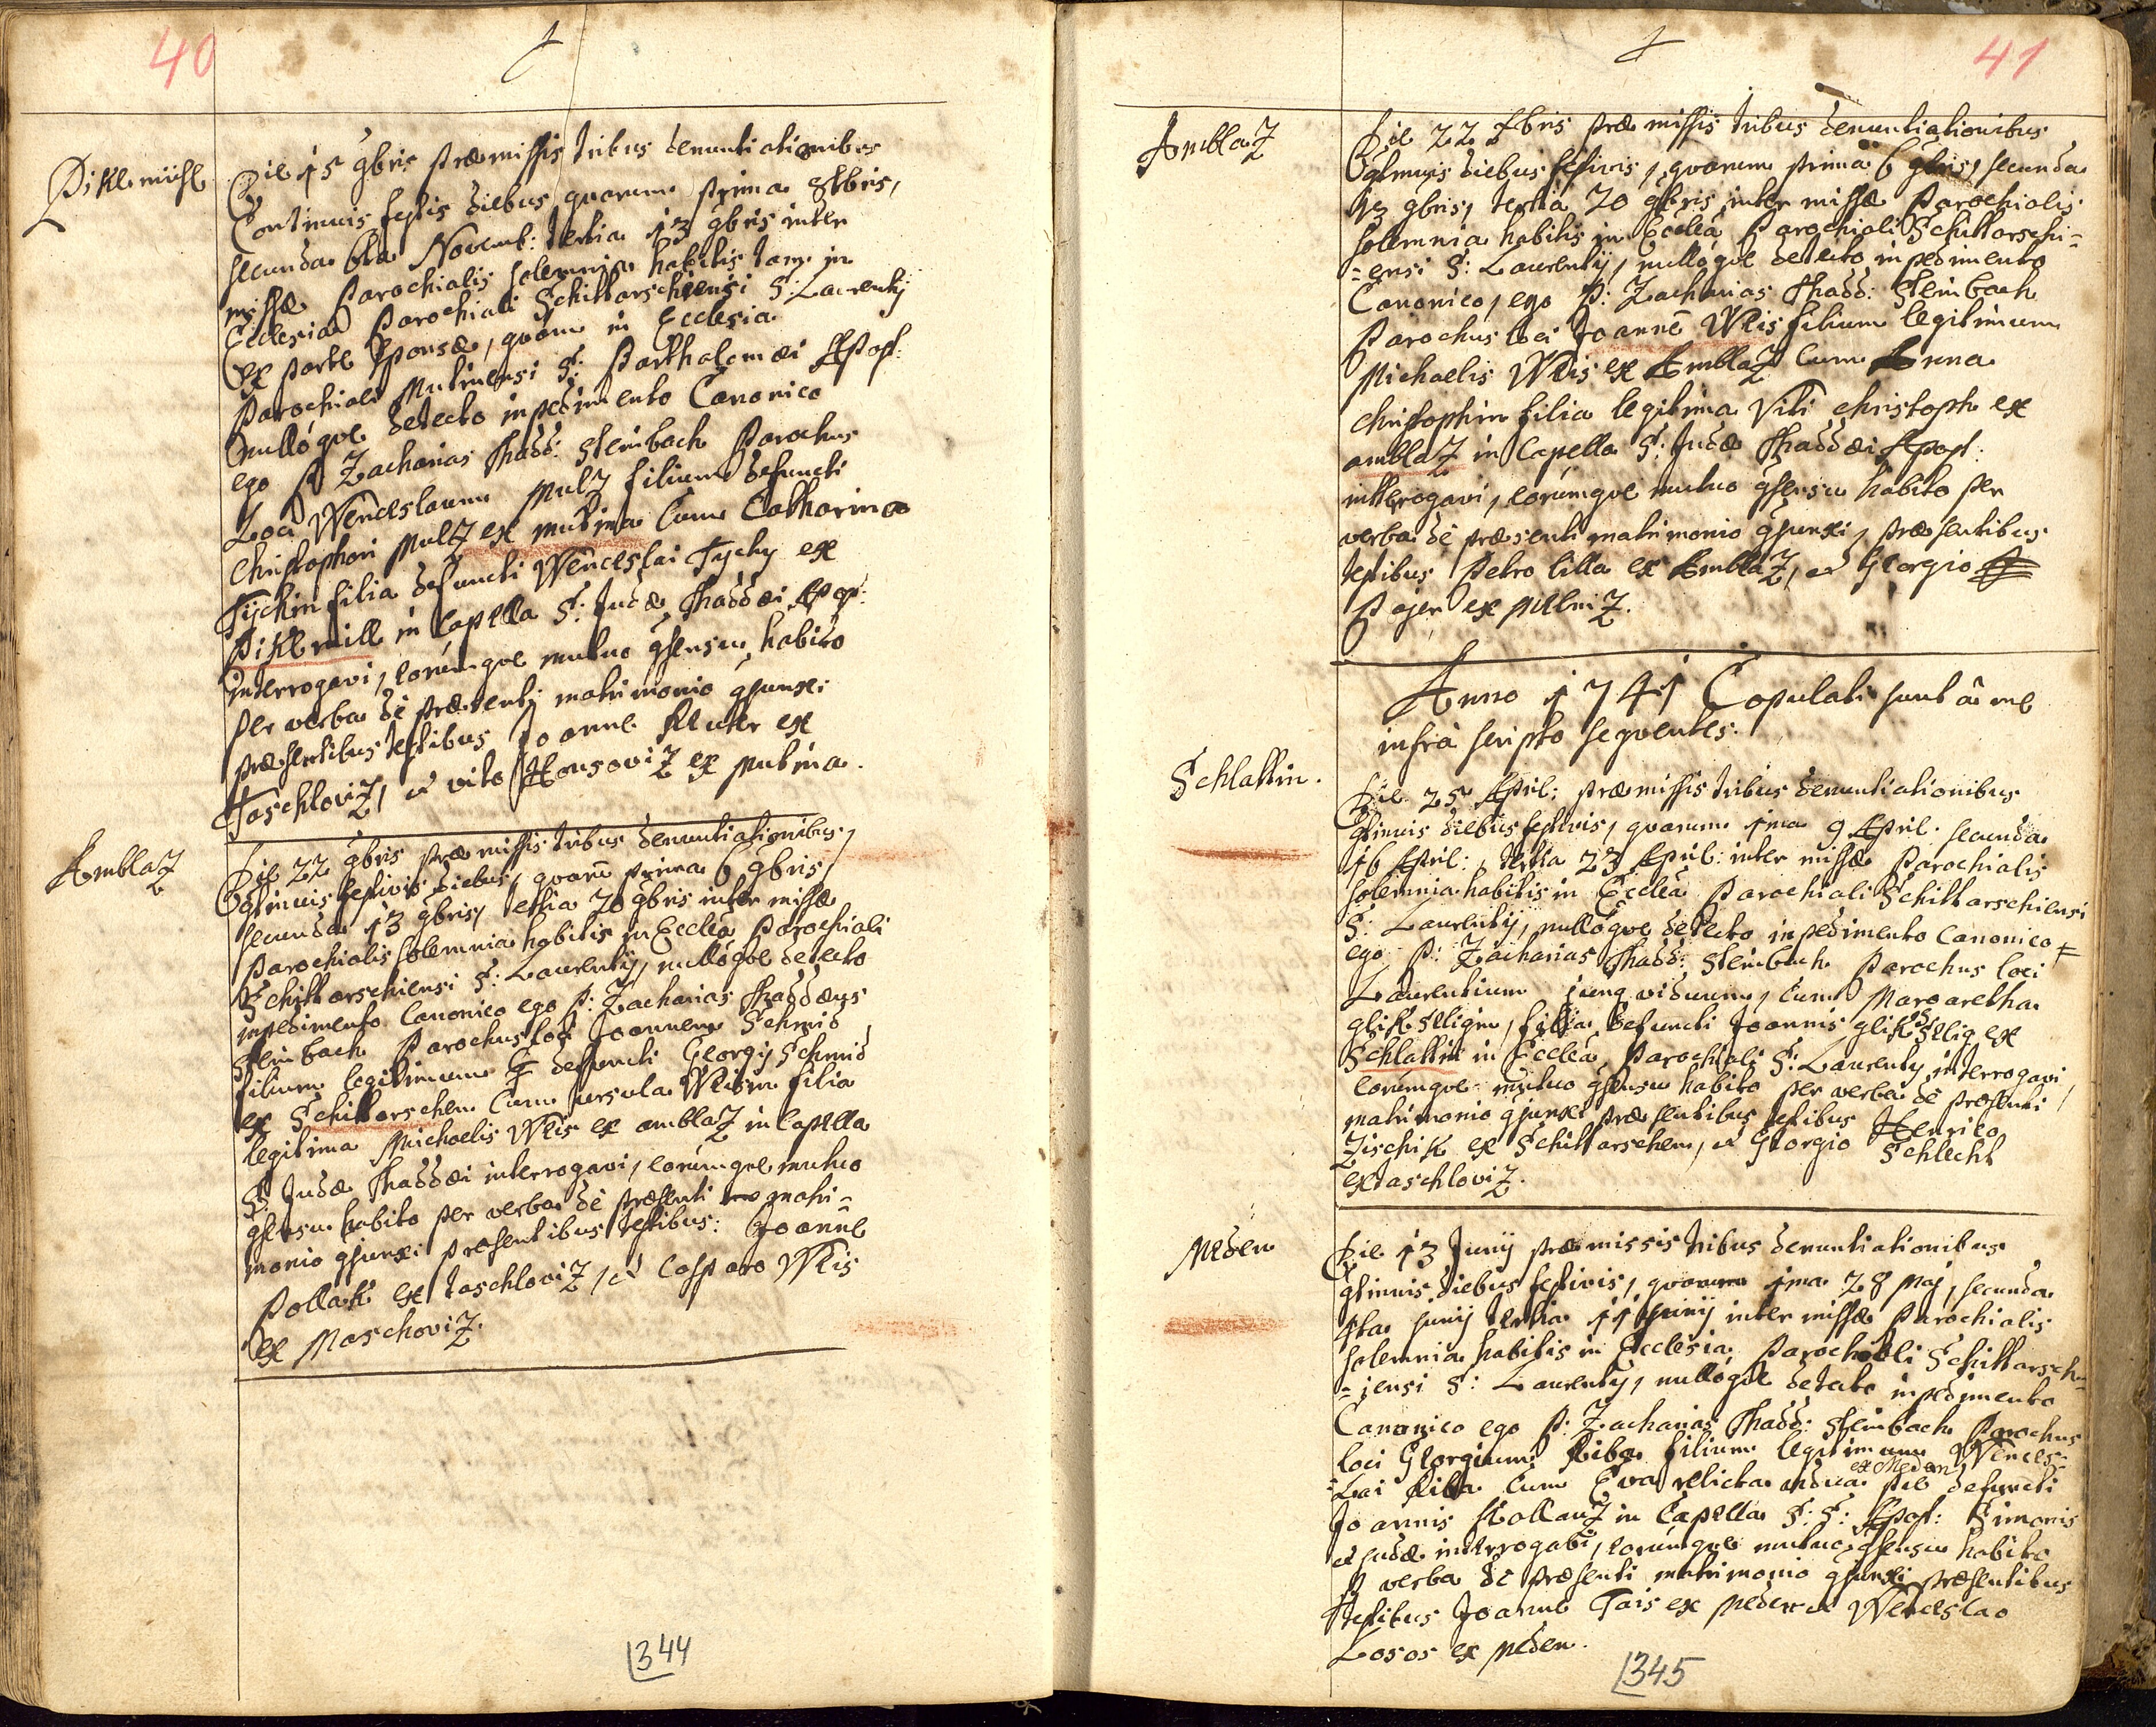 40
Piklmühl
Die 15 9bris præmissis tribus denuntiationibus
Continuis festis diebus quarum prima 8tbris,
secunda 6ta Novemb: tertia 13 9bris inter
missæ Parochialis solemnia habitis tam in
Ecclesia Parochiali Schittarschiensi S: Laurentij
ex parte sponsæ, quam in Ecclesia
Parochiali Mutinensi S: Barthalomæi Apost:
nullóqve detecto inpedimento Canonico
ego P Zacharias Thadd: Steinbach Parochus
Loci Wenceslaum Multz filium defuncti
Christophori Multz ex Mutina cum Catharina
Tÿchin filia defuncti Wenceslai Tychy ex
Piklmill in Capella S: Judæ Thaddæi Apost:
interrogavi, eorúmqve mutuo 9sensu habito
per verba de præsenti matrimonio 9junxi
præsentibus testibus Joanne Reuter ex
Taschloviz, et vito Honsoviz ex Mutina.
Amblaz
Die 22 9bris præmissis tribus denuntiationibus,
9tinuis festivis diebus, quarū prima 6 9bris,
secunda 13 9bris, tertia 20 9bris inter missæ
Parochialis solemnia habitis in Eccleā Parochiali
Schittarschiensi S: Laurentij, nullóqve detecto
inpedimento Canonico ego P: Zacharias Thaddæus
Steinbach Parochus loci Joannem Schmid
filium legitimum defuncti Georgij Schmid
ex Schittarschen cum ursula Weisin filia
legitima Michaelis Weis ex amblaz in Capella
S: Judæ Thaddæi interrogavi, eorúmqve mutuo
9sensu habito per verba de præsenti matri=
monio 9junxi præsentibus testibus: Joanne
Pollak ex taschloviz, et Casparo Weis
ex Maschoviz.
344
41
Amblaz
Die 22 9bris præmissis tribus denuntiationibus
9tinuis diebus festivis, quarum prima 6 9bris, secunda
13 9bris, tertia 20 9bris inter missæ Parochialis
solemnia habitis in Eccleā Parochiali Schittarschi=
=ensi S: Laurentij, nullóqve detecto inpedimento
Canonico, ego P: Zacharias Thadd: Steinbach
Parochus loci Joannē Weis filium legitimum
Michaelis Weis ex Amblaz cum Anna
Christophin filia legitima Viti christoph ex
amblaz in Capella S: Judæ Thaddæi Apost:
interrogavi, eorúmqve mutuo 9sensu habito per
verba de præsenti matrimonio 9junxi, præsentibus
testibus Petro Lilla ex Amblaz, et Georgio
Pajer ex Melniz.
Anno 1741 Copulati sunt à me
infrà scripto seqventes:
Schlattin.
Die 25 April: præmissis tribus denuntiationibus
9tinuis diebus festivis, quarum 1ma 9 April. secunda
16 April:, tertia 23 April: inter missæ Parochialis
solemnia habitis in Eccleā Parochiali Schittarschiensi
S: Laurentij, nullóqve detecto inpedimento Canonico
ego P: Zacharias Thadd: Steinbach Parochus loci
Laurentium jung viduum, cum Margaretha
glikseligin, filia defuncti Joannis glikselig ex
Schlattin in Eccleā Parochiali S: Laurentij interrogavi,
eorúmqve mutuo 9sensu habito per verba de præsenti
matrimonio 9junxi præsentibus testibus Henrico
Zischik ex Schittarschen, et Georgio Schlecht
ex taschloviz.
Meden
Die 13 Junij præmissis tribus denuntiationibus
9tinuis diebus festivis, quarum 1ma 28 Maj, secunda
4ta Junij tertia 11 Junij inter missæ Parochialis
solemnia habitis in Ecclesia Parochiali Schittarsch=
=iensi S: Laurentij, nullóqve detecto inpedimento
Canonico ego P: Zacharias Thadd: Steinbach Parochus
loci Georgium Riba filium legitimum Wences=
ex Meden
=Lai Riba cum Eva relicta vidua piè defuncti
Joannis Kollautz in Capella S: S: Apost: Simonis
et Judæ interrogavi, eorúmqve mutuo 9sensu habito
p verba de præsenti matrimonio 9junxi præsentibus
testibus Joanne Tais ex Meden et Wenceslao
Losos ex Meden.
345